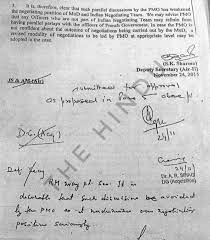 2. It is therefore, clear that such parallel discussions by the PMO has weakened
the negotiating position of MoD and Indian Negotiating Team. We may advise PMO
that any Officers who are not part of Indian Negotiating Team may refrain from
having parallel parlays with the officers of French Government. In case the PMO is
not confident about the outcome of negotiations being carried out by the MoD, a
revised modality of negotiations to be led by PMO at appropriate level may be
adopted in the case.
(S.K. Sharma)
Deputy Secretary (Air-II)
November 24, 2015
JS & AM(Air)
submitted for approval
as proposed in Para above pl
24/11
D.G.(Acq)
24/11
Dr. A. R. Sihag
DG (Acquisition)
Def Secy
RM may pl. see. It is
desirable that such discussions be avoided
by the PMO as it undermines our negotiating
position seriously.
THE HINDU